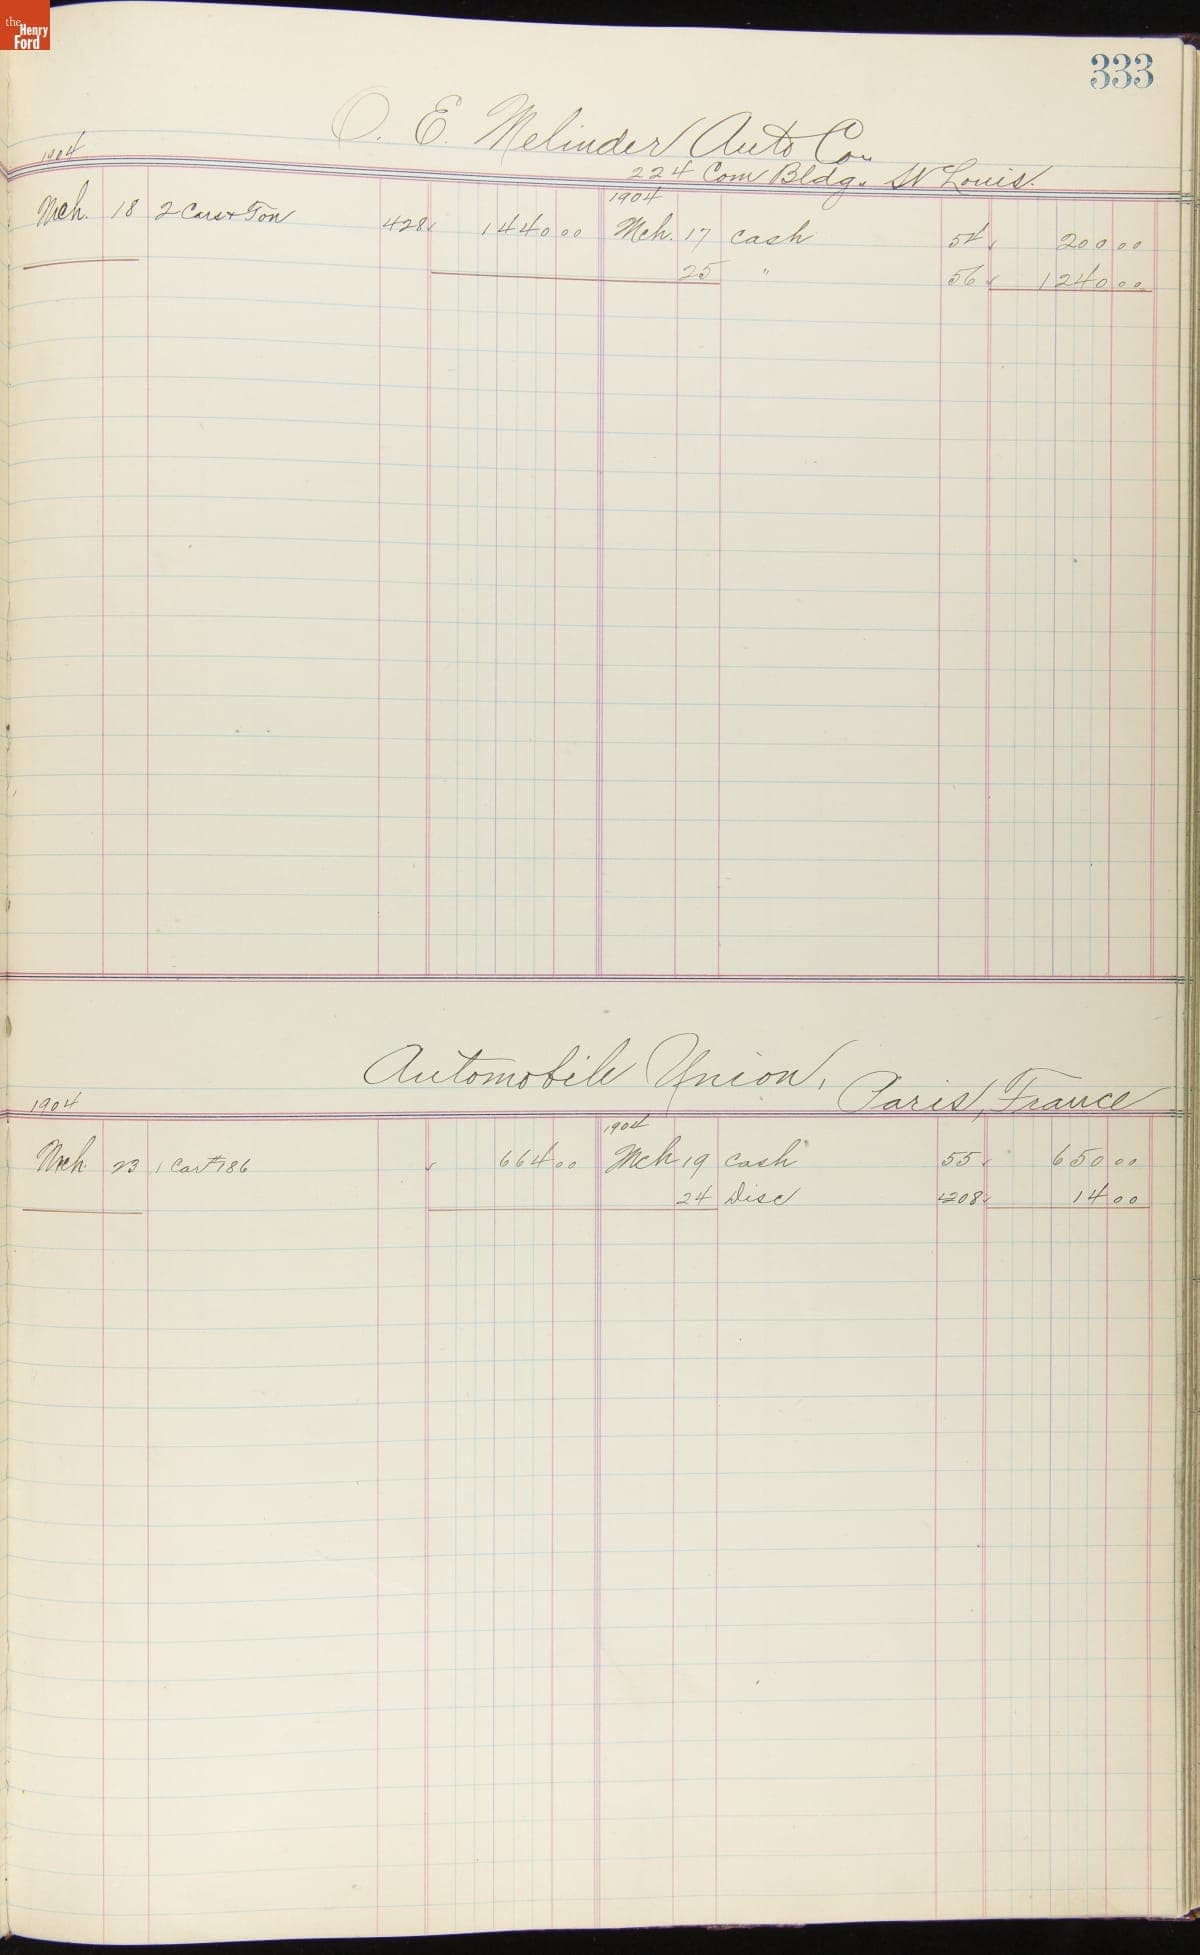 the Henry Ford
333
O. E. Melinder Auto Co.
224 Com Bldg. St Louis.
1904
1904
Mch. 18 2 Cars + Ton 428 ✓ 1440 00 Mch. 17 Cash 54 ✓ 200 00
25 " 56 ✓ 1240 00
Automobile Union, Paris, France
1904
1904
Mch. 23 1 Car #186 ✓ 664 00 Mch 19 Cash 55 ✓ 650 00
24 Disc 208 ✓ 14 00